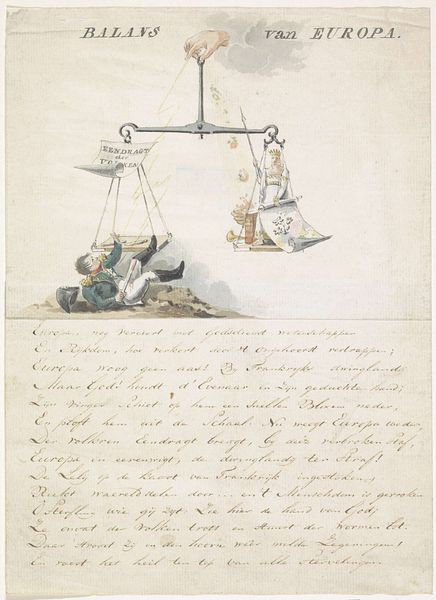 BALANS van EUROPA.
EENDRAGT
der
VOLKEN
Europa, nog versiert met godsdienst wetenschappen
En Rijkdom, hoe verkert door 't ongehoord vertrappen;
Europa woog geen aas! By Frankryks dwinglandy
Maar God! houdt d' Evenaar in zyn geduchte hand;
Zyn vinger schiet op hem een snellen Blixem neder,
En ploft hem uit de Schaal. Nu weegt Europa weder,
Der volkren Eendragt brengt, by deze verbroken
Europa in evenwigt, de dwinglandy ter straf!
De Lely op de kroon van Frankryk ingestoken,
Rukt waerelddelen door ... en 't Menschdom is gewroken
ô Sterfling wie gij zyt, Zie hier de hand van God,
Ze omvat der Volken trots en stuurt der wormen lot.
Daar strooit Zy in den hoorn weer milde Zegeningen
En voert het heil ten top van alle stervelingen.